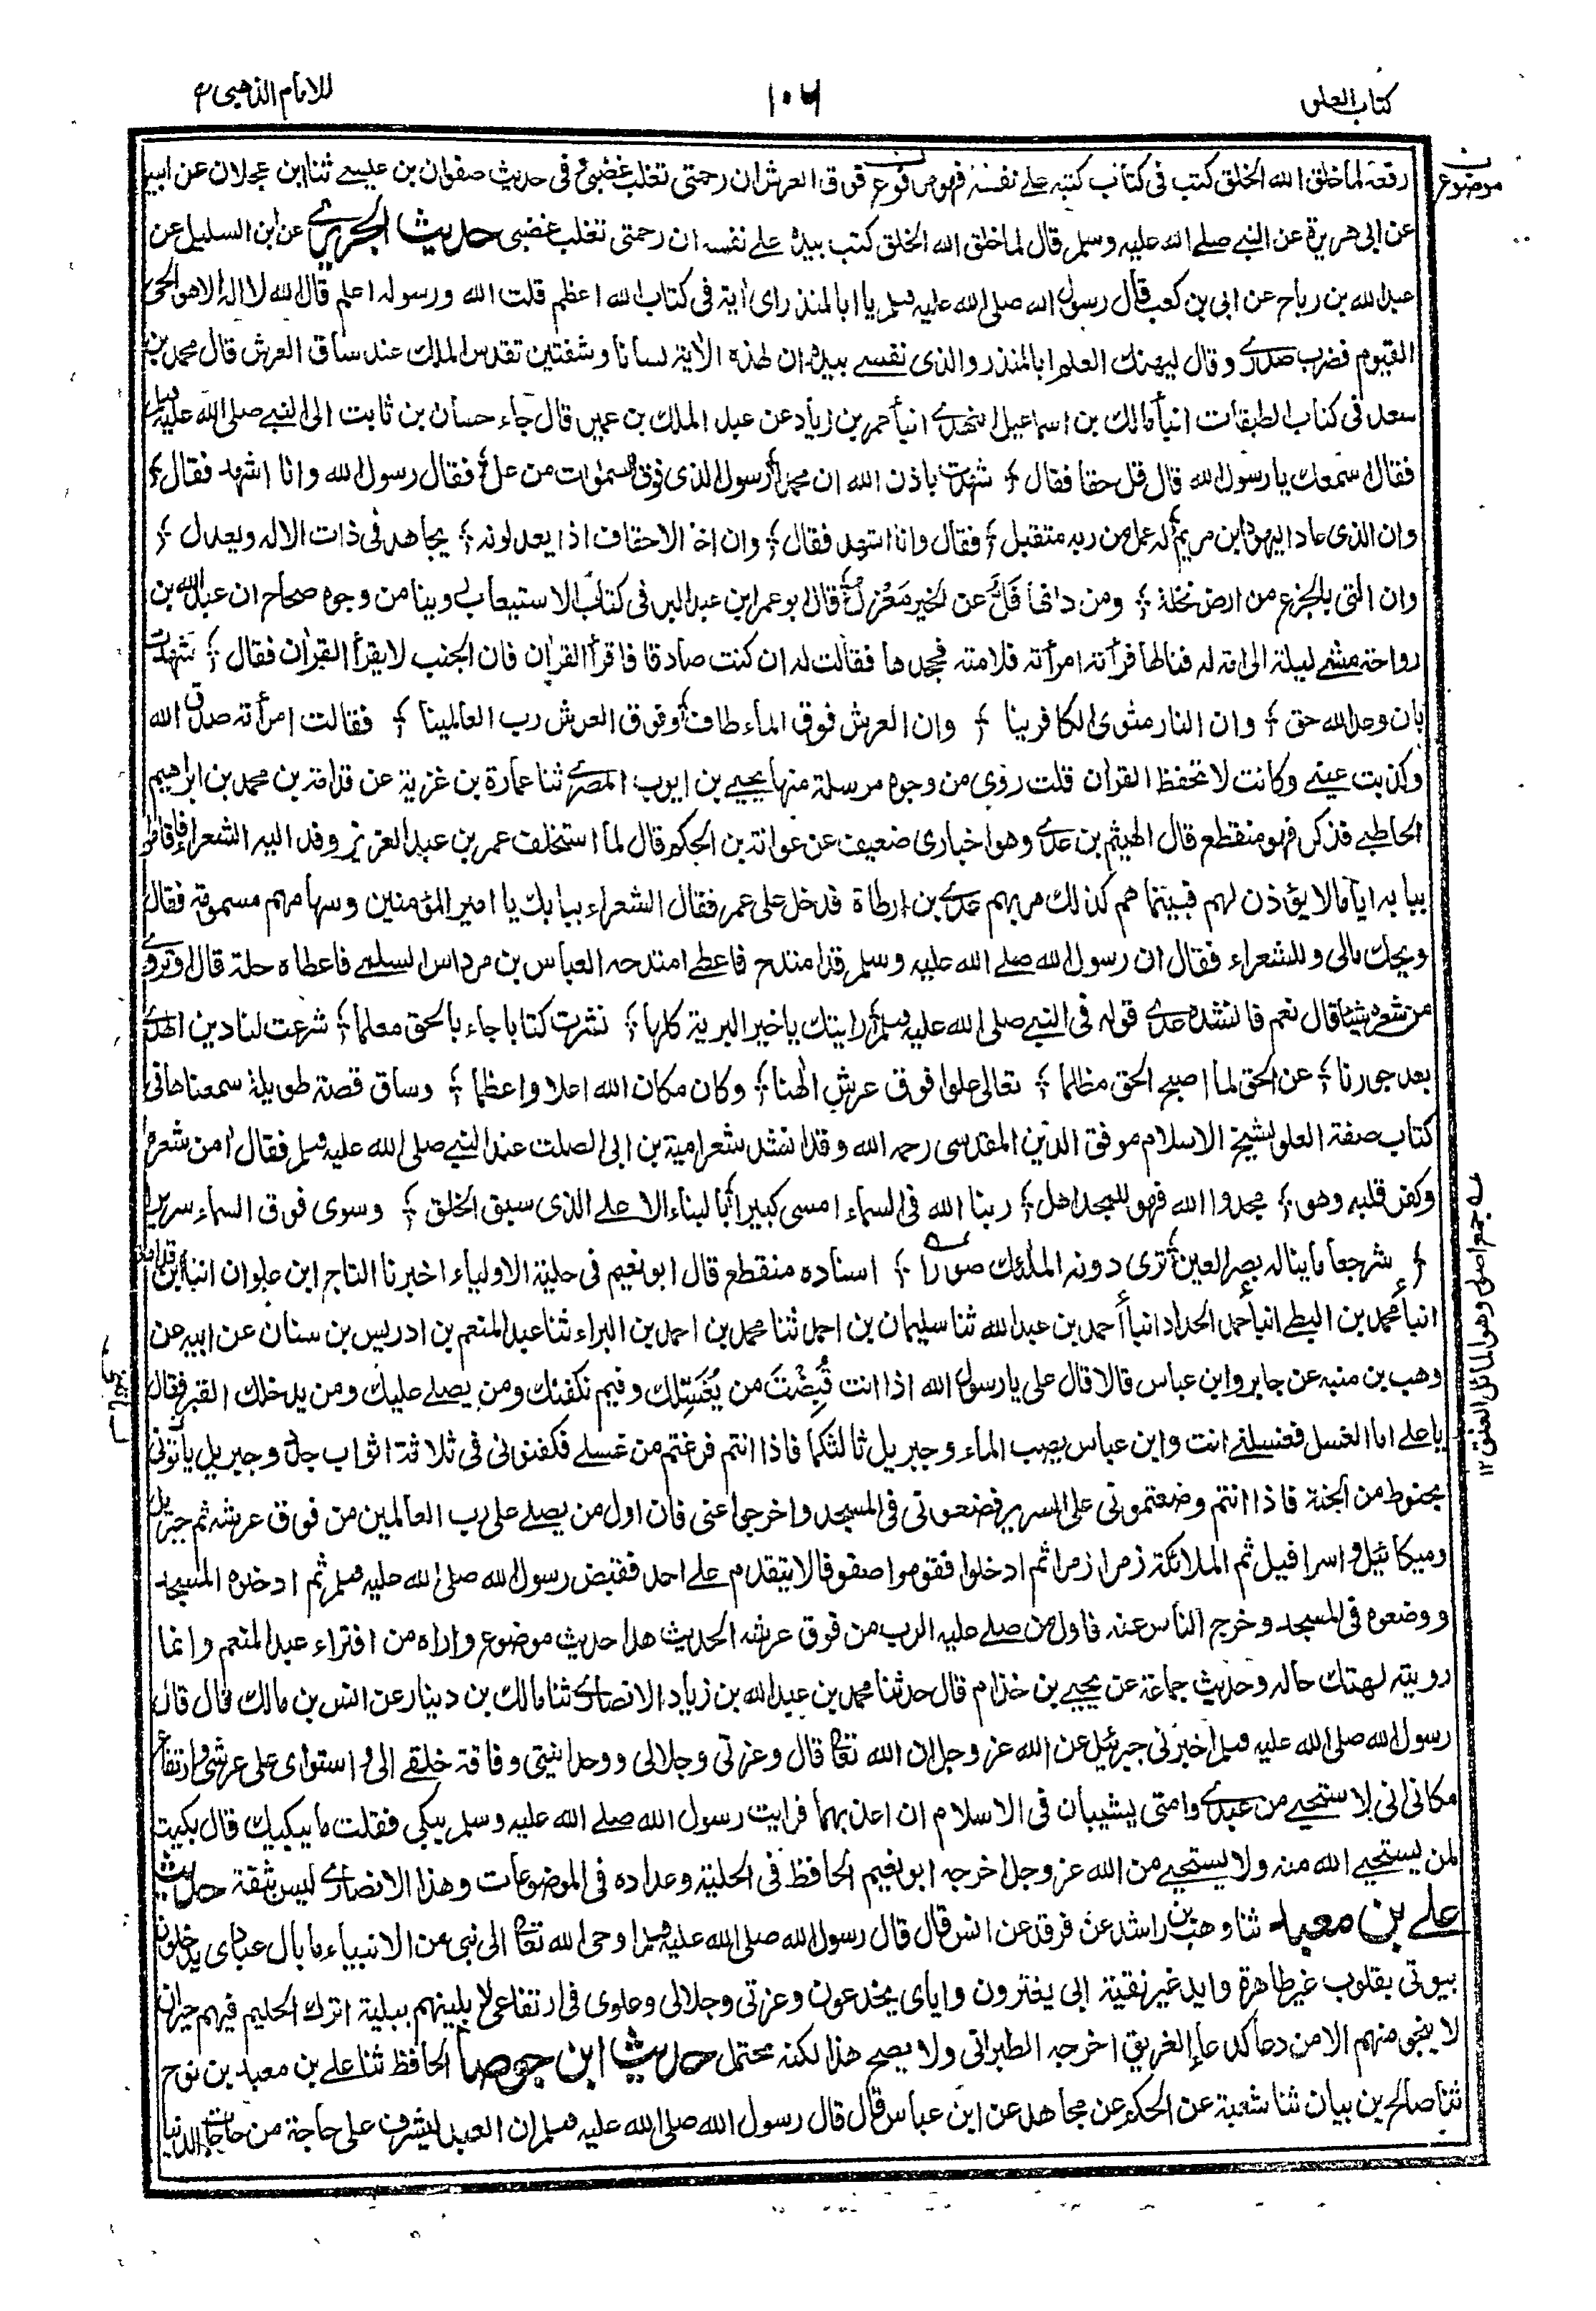 كتاب العلو
١٠٦
للامام الذهبی
رفعه لما خلق الله الخلق كتب فى كتاب كتبه على نفسه فهو مرفوع فوق العرش ان رحمتى تغلب غضبى فى حديث صفوان بن عيسے ثنا ابن عجلان عن ابيه
موضوع
عن ابى هريرة عن النبے صلے الله عليه وسلم قال لما خلق الله الخلق كتب بيده علے نفسه ان رحمتى تغلب غضبى حديث الجريرے عن ابى السليل عن
عبد الله بن رباح عن ابى بن كعب قال رسول الله صلى الله عليه وسلم يا ابا المنذر اى اية فى كتاب الله اعظم قلت الله ورسوله اعلم قال الله لا اله الا هو الحى
القيوم فضرب صدرے وقال ليهنك العلم ابا المنذر والذى نفسے بيده ان لهذه الاية لسانا وشفتين تقدس الملك عند ساق العرش قال محمد بن
سعد فى كتاب الطبقات انبأ مالك بن اسماعيل النهدے انبأ عمر بن زياد عن عبد الملك بن عمير قال جاء حسان بن ثابت الى النبے صلى الله عليه وسلم
فقال اسمعك يا رسول الله قال قل حقا فقال ؛ شهدت باذن الله ان محمدا رسول الذى فوق السموات من عل ؛ فقال رسول الله وانا اشهد فقال ؛
وان الذى عاد اليهود ابن مريم ؛ له عمل من ربه متقبل ؛ فقال وانا اشهد فقال ؛ وان اخا الاحقاف اذ يعدلونه ؛ يجاهد فى ذات الاله ويعدل ؛
وان التى بالجزع من ارض نخلة ؛ ومن دانها فَلٌّ عن الخير مَعْزِلُ ؛ قال ابو عمر ابن عبد البر فى كتاب الاستيعاب روينا من وجوه صحاح ان عبد الله بن
رواحة مشے ليلة الى امة له فنالها فرأته امرأته فلامته فجحدها فقالت له ان كنت صادقا فاقرأ القران فان الجنب لا يقرأ القران فقال ؛ شهدت
بان وعد الله حق ؛ وان النار مثوى الكافرينا ؛ وان العرش فوق الماء طاف ؛ وفوق العرش رب العالمينا ؛ فقالت امرأته صدق الله
وكذبت عينے وكانت لا تحفظ القران قلت روى من وجوه مرسلة منها يحيے بن ايوب المصرے ثنا عمارة بن غزية عن قدامة بن محمد بن ابراهيم
الحاطبے فذكره فهو منقطع قال الهيثم بن عدے وهو اخبارى ضعيف عن عوانة بن الحكم قال لما استخلف عمر بن عبد العزيز وفد اليه الشعراء فاقاموا
ببابه اياما لا يؤذن لهم فبينما هم كذلك مر بهم عدے بن ارطاة فدخل على عمر فقال الشعراء ببابك يا امير المؤمنين وسهامهم مسمومة فقال
ويحك مالى وللشعراء فقال ان رسول الله صلے الله عليه وسلم قد امتدح فاعطے امتدحه العباس بن مرداس السلمے فاعطاه حلة قال اوتروے
من شعره شيئا قال نعم فانشده عدے قوله فى النبے صلى الله عليه وسلم ؛ رايتك يا خير البرية كلها ؛ نشرت كتابا جاء بالحق معلما ؛ شرعت لنا دين الهدے
بعد جورنا ؛ عن الحق لما اصبح الحق مظلما ؛ تعالى علوا فوق عرش الهنا ؛ وكان مكان الله اعلا واعظما ؛ وساق قصة طويلة سمعناها فى
كتاب صفة العلو لشيخ الاسلام موفق الدين المقدسى رحمه الله وقد انشد شعر امية بن ابى الصلت عند النبے صلى الله عليه وسلم فقال امن شعره
وكفر قلبه وهو ؛ مجدوا الله فهو للمجد اهل ؛ ربنا الله فى السماء امسى كبيرا ؛ بالبناء الاعلے الذى سبق الخلق ؛ وسوى فوق السماء سريرا
؛ شرجعا ما يناله بصر العين ؛ ترى دونه الملئك صورا ؛ اسناده منقطع قال ابو نعيم فى حلية الاولياء اخبرنا التاج ابن علوان انبأ ابن قدامة
انبأ محمد بن البطے انبأ حمد الحداد انبأ احمد بن عبد الله ثنا سليمان بن احمد ثنا محمد بن احمد بن البراء ثنا عبد المنعم بن ادريس بن سنان عن ابيه عن
وهب بن منبه عن جابر وابن عباس قالا قال على يا رسول الله اذا انت قُبِضْتَ من يُغَسِّلك وفيم نكفنك ومن يصلے عليك ومن يدخلك القبر فقال
يا علے اما الغسل فغسلنے انت وابن عباس يصب الماء وجبريل ثالثكما فاذا انتم فرغتم من غسلے فكفنونى فى ثلاثة اثواب جدد وجبريل يأتونى
بحنوط من الجنة فاذا انتم وضعتمونى على السرير فضعونى فى المسجد واخرجوا عنى فان اول من يصلے على رب العالمين من فوق عرشه ثم جبريل
وميكائيل و اسرافيل ثم الملائكة زمرا زمرا ثم ادخلوا فقوموا صفوفا لا يتقدم علے احد فقبض رسول الله صلى الله عليه وسلم ثم ادخلوه المسجد
ووضعوه فى المسجد وخرج الناس عنه فاول من صلے عليه الرب من فوق عرشه الحديث هذا حديث موضوع واراه من افتراء عبد المنعم وانما
رويته لهتك حاله وحديث جماعة عن يحيے بن خذام قال حدثنا محمد بن عبد الله بن زياد الانصارے ثنا مالك بن دينار عن انس بن مالك قال قال
رسول الله صلى الله عليه وسلم اخبرنى جبرئيل عن الله عز وجل ان الله تعا قال وعزتى وجلالى ووحدانيتى وفاقة خلقے الى و استوائى على عرشى وارتفاع
مكانى انى لا ستحيے من عبدے وامتى يشيبان فى الاسلام ان اعذبهما فرايت رسول الله صلے الله عليه وسلم يبكى فقلت ما يبكيك قال بكيت
لمن يستحيے الله منه ولا يستحيے من الله عز وجل اخرجه ابو نعيم الحافظ فى الحلية وعداده فى الموضوعات وهذا الانصارے ليس بثقة حديث
علے بن معبد ثنا وهب بن راشد عن فرقد عن انس قال قال رسول الله صلى الله عليه وسلم اوحى الله تعا الى نبى من الانبياء ما بال عبادى يدخلون
بيوتى بقلوب غير طاهرة وايد غير نقية ابى يغترون واياى يخدعون وعزتى وجلالى وعلوى فى ارتفاعى لا بلينهم ببلية اترك الحليم فيهم حيران
لا ينجو منهم الا من دعا كدعاء الغريق اخرجه الطبرانى ولا يصح هذا لكنه محتمل حديث ابن جوصا الحافظ ثنا علے بن معبد بن نوح
ثنا صالح بن بيان ثنا شعبة عن الحكم عن مجاهد عن ابن عباس قال قال رسول الله صلى الله عليه وسلم ان العبد ليشرف على حاجة من حاجات الدنيا
جمع اصلى وهو المائل العنق ١٢